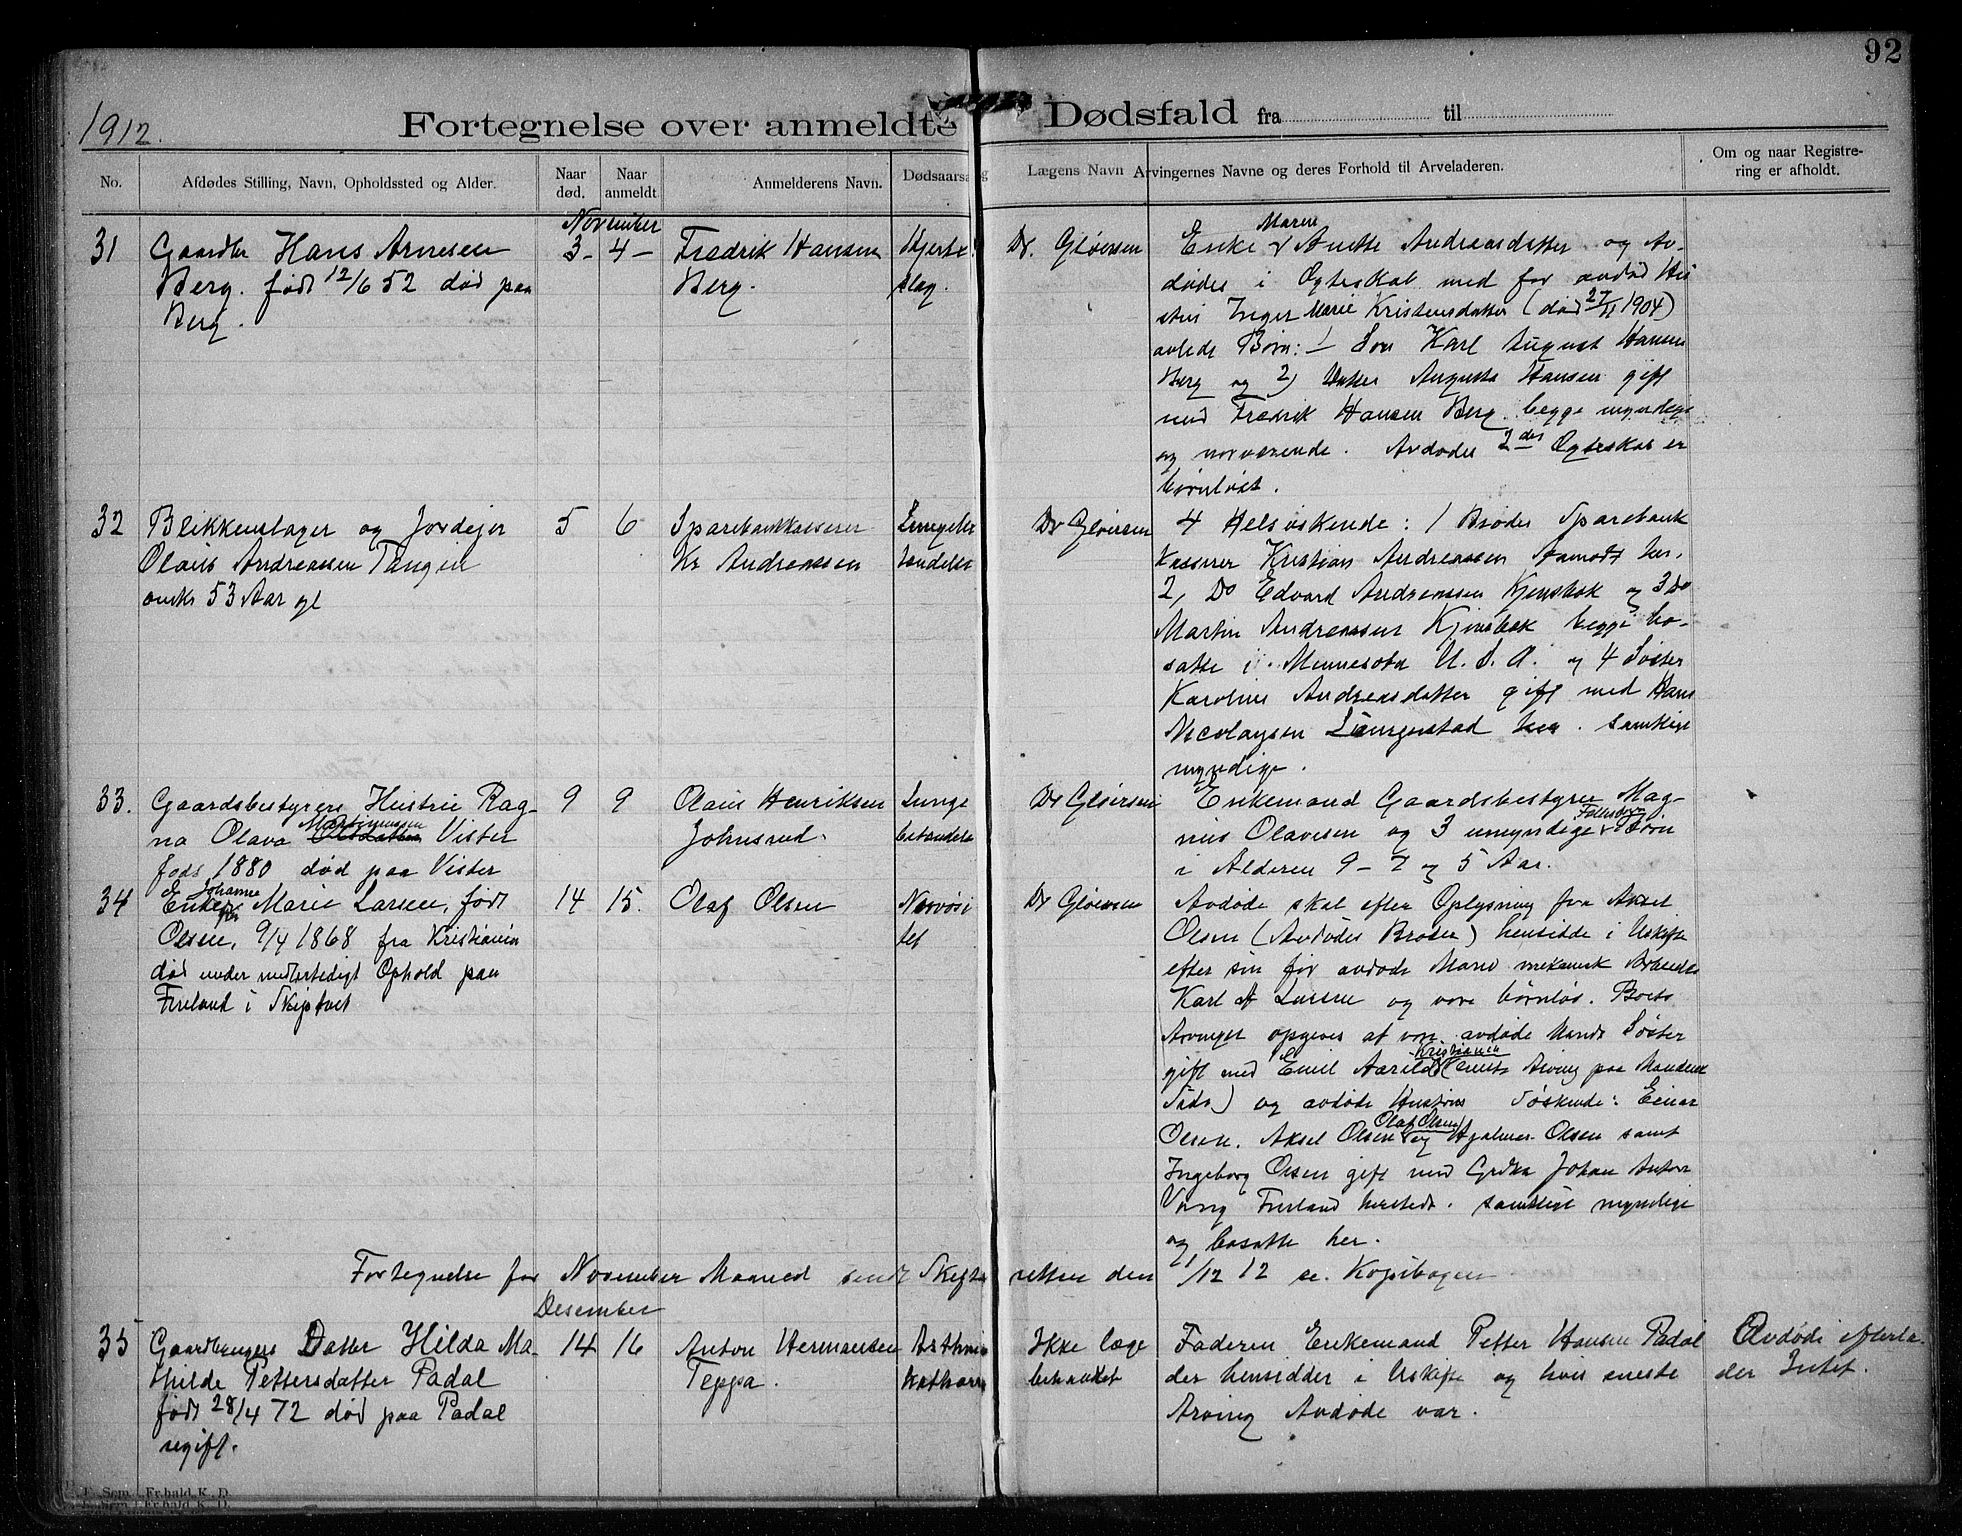 92
1912.
Fortegnelse over anmeldte Dødsfald fra til
No.
Afdødes Stilling, Navn, Opholdssted og Alder.
Naar død.
Naar anmeldt.
Anmelderens Navn.
Dødsaarsag
Lægens Navn
Arvingernes Navne og deres Forhold til Arveladeren.
Om og naar Registre-
ring er afholdt.
November
31
Gaardbr Hans Arnesen
Berg. født 12/6 52 død paa
Berg.
3 - 4 -
Fredrik Hansen
Berg.
Hjerte
slag.
Dr. Gløersen
Maren
Enke Anette Andreasdatter og Av-
dødes i Ogteskab med før avdød Hu
stru Inger Marie Kristensdatter (død 27/11 1904)
avlede Børn: 1 Søn Karl August Hansen
Berg og 2) Datter Augusta Hansen gift
med Fredrik Hansen Berg. begge myndige
og nærværende. Avdødes 2det Ogteskab er
børnløst.
32
Blikkenslager og Jordejer
Olaus Andreassen Tangen
53 Aar gl
5 6
Sparebankkasserer
Kr Andreassen
Lungebe
tændelse
Dr Gløersen
4 Helsøskende: 1 Broder Sparebank
kasserer Kristian Andreassen Aamodt her.
2, Do Edvard Andreassen Kjensbak og 3 Do
Martin Andreassen Kjensbak begge bo-
satte i Minnesota U. S. A. og 4 Søster
Karoline Andreasdatter gift med Hans
Nicolaysen Lungestad her. samtlige
myndige.
33.
Gaardsbestyrers Hustru Rag-
na Olava Martinussen Vister
født 1880 død paa Vister
9 9
Olaus Henriksen
Johnsrud.
Lunge
betændelse
Dr Gløersen
Enkemand Gaardsbestyrer Mag-
nus Olavesen og 3 umyndige Fælles Børn
i Alderen 9 - 7 og 5 Aar.
34
Enke Johanne Marie Larsen, født
Olsen, 9/4 1868 fra Kristiania
død under midlertidigt Ophold paa
Finland i Skiptvet
14 15.
Olaf Olsen
Nervøsi
tet
Dr Gløersen
Avdøde skal efter Oplysning fra Aksel
Olsen (Avdødes Broder) hensidde i Uskifte
efter sin før avdøde Mand mekanisk Arbeider
Karl A Larsen og vare børnløs. Boets
Arvinger opgives at være avdøde Mands Søster
gift med Emil Aarild Kristiania (eneste Arving paa Mandens
Side) og avdøde Hustrus Søskende: Einar
Olsen. Aksel Olsen Olaf Olsen og Hjalmar Olsen samt
Ingeborg Olsen gift med Grdbr Johan Anton
Finland herstedt. samtlige myndige
og bosatte her.
Fortegnelse for November Maaned sendt Skifte retten den 1/12 12 se. Kopibogen
Desember
35
Gaardbrugers Datter Hilda Ma-
thilde Pettersdatter Padal
født 28/4 72 død paa Padal
ugift.
14 16
Anton Hermansen
Teppa.
Asthma
Katharr
Ikke læge
behandlet
Faderen Enkemand Petter Hansen Padal
der hensidder i Uskifte og hvis eneste
Arving Avdøde var.
Avdøde efterla-
der Intet.